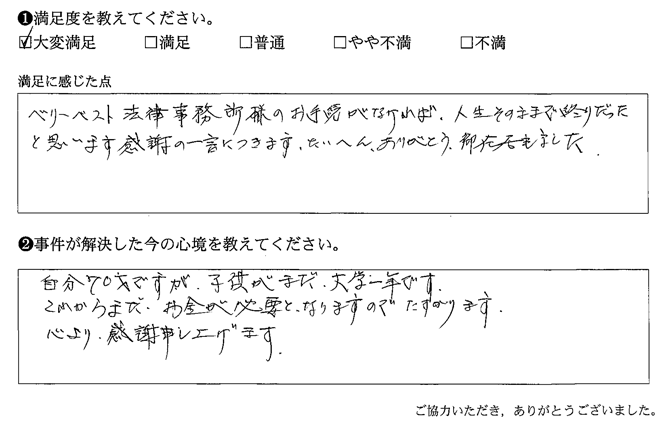 ❶満足度を教えてください。
☑大変満足 □満足 □普通 □やや不満 □不満
満足に感じた点
ベリーベスト法律事務所様のお手続がなければ、人生そのままで終りだった
と思います感謝の一言につきます、たいへん、ありがとう、御在いました。
❷事件が解決した今の心境を教えてください。
自分70才ですが、子供がまだ、大学一年です。
これからまだ、お金が必要と、なりますのでたすかります。
心より、感謝申し上げます。
ご協力いただき，ありがとうございました。